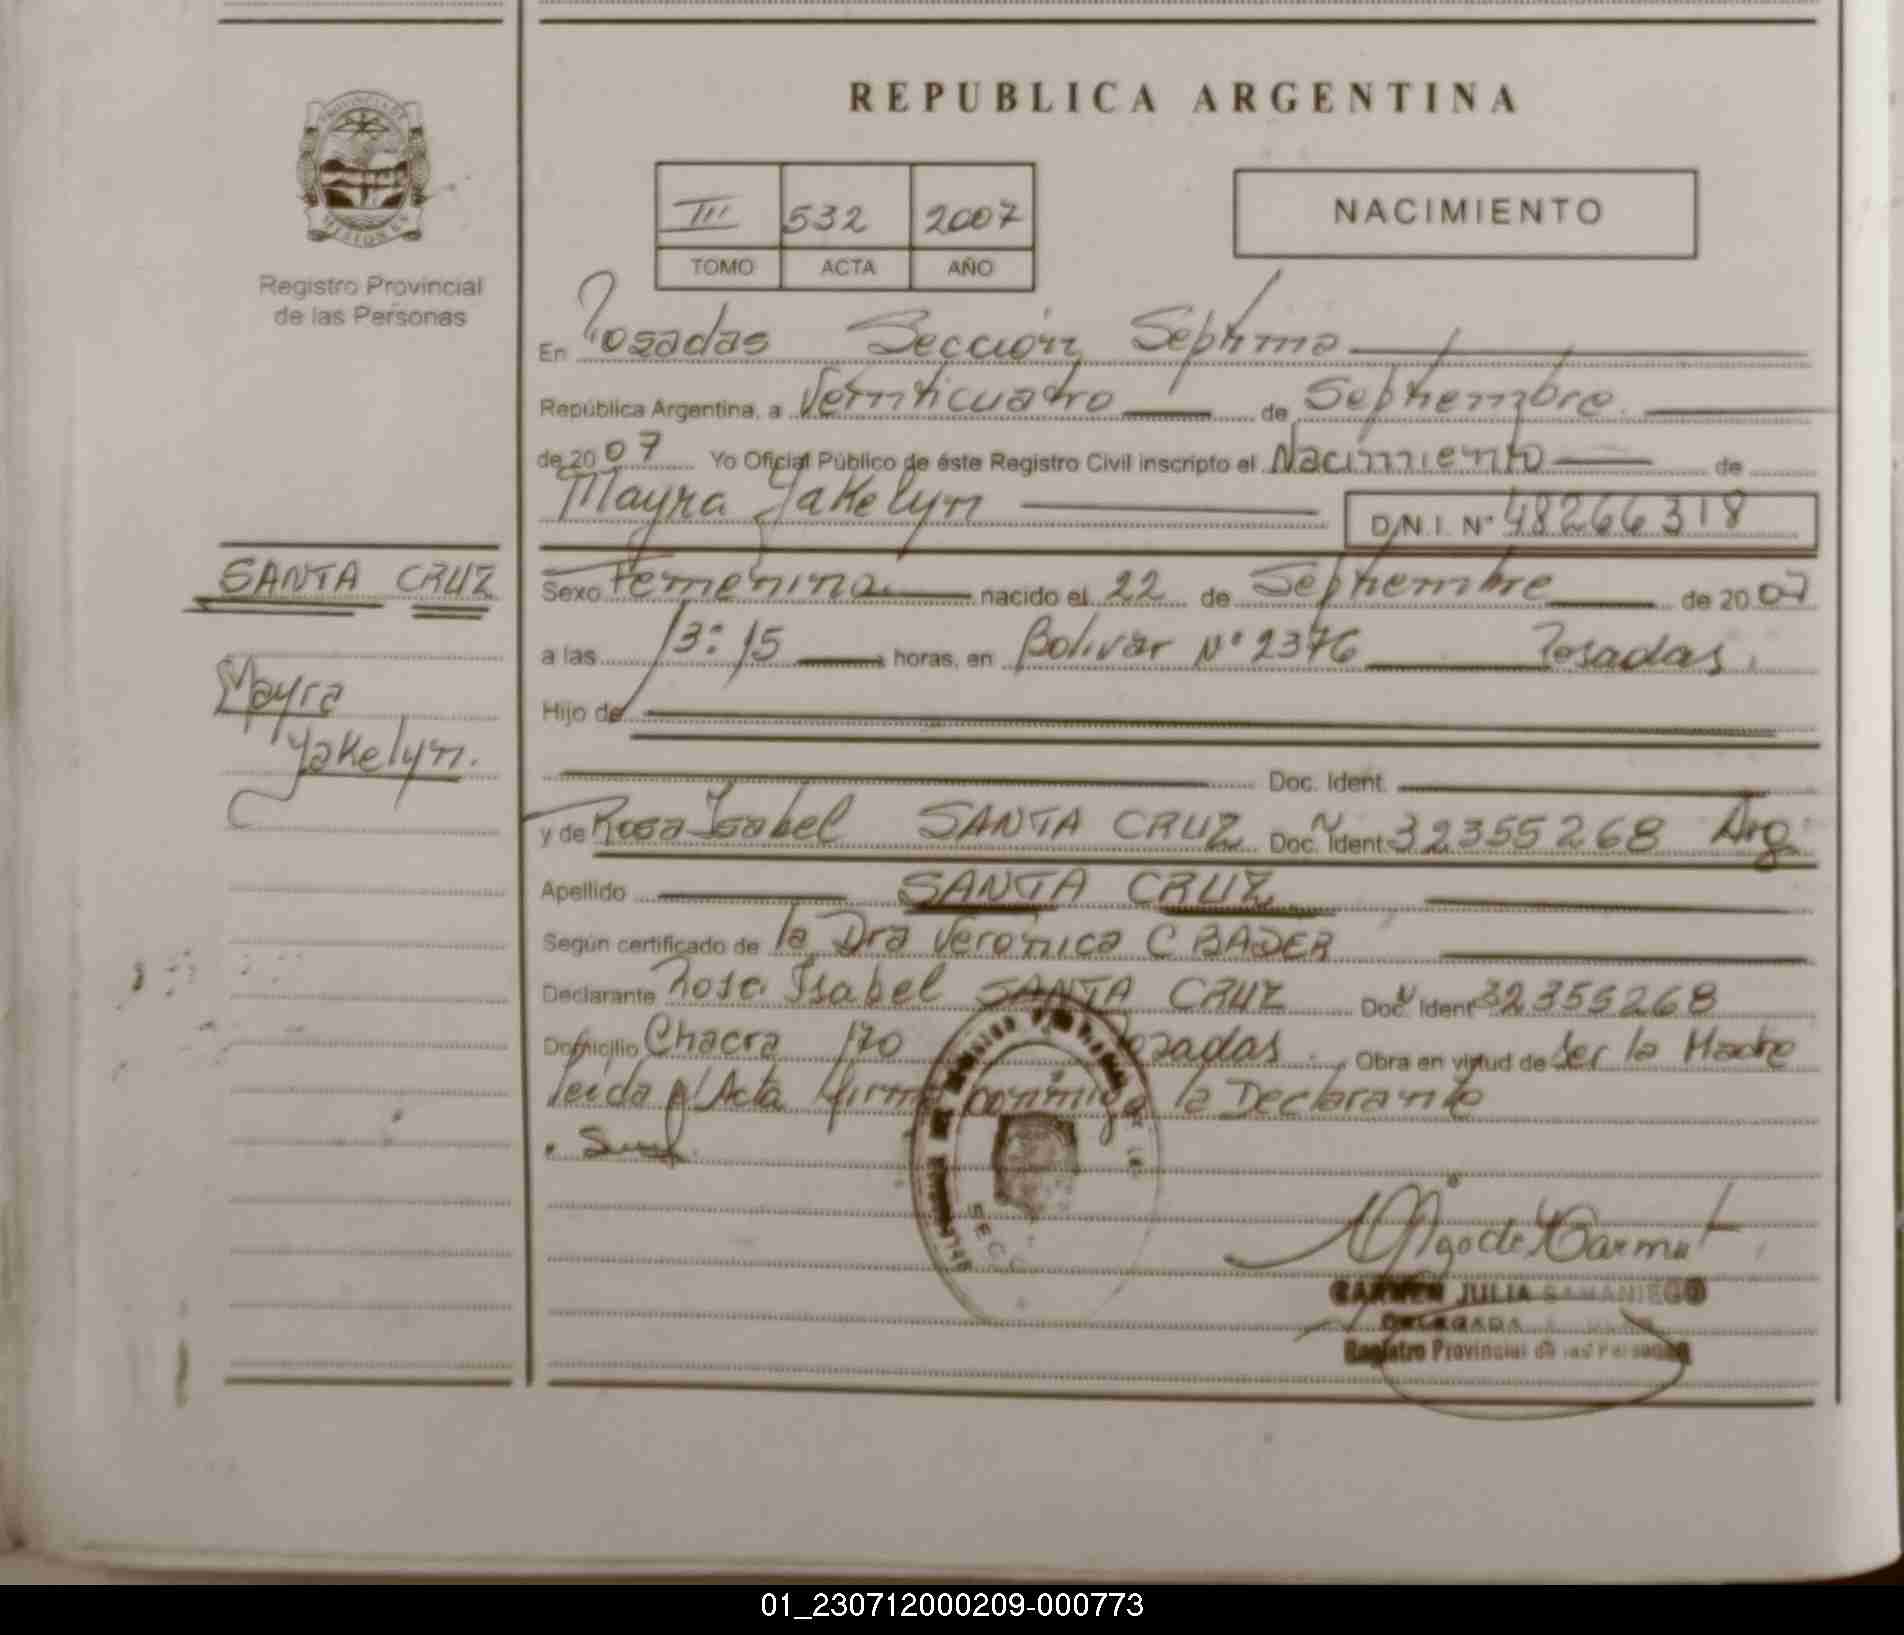 REPUBLICA ARGENTINA
PROVINCIA DE
MISIONES
Registro Provincial
de las Personas
III 532 2007
TOMO ACTA AÑO
NACIMIENTO
En Posadas Sección Séptima
República Argentina, a Veinticuatro de Septiembre.
de 2007 Yo Oficial Público de éste Registro Civil inscripto el Nacimiento de
Mayra Yakelyn D.N.I. Nº 48266318
SANTA CRUZ
Mayra
Yakelyn.
Sexo Femenina nacido el 22 de Septiembre de 2007
a las 13:15 horas, en Bolivar Nº 2376 Posadas.
Hijo de
Doc. Ident.
y de Rosa Isabel SANTA CRUZ Doc. Nº Ident 32355268 Arg.
Apellido SANTA CRUZ
Según certificado de la Dra Verónica C BADER
Declarante Rosa Isabel SANTA CRUZ Doc. Nº Ident 32355268
Domicilio Chacra 170 Posadas. Obra en virtud de Ser la Madre
leída el Acta firma conmigo la Declarante
SECC
CARMEN JULIA SAMANIEGO
DELEGADA
Registro Provincial de las Personas
01_230712000209-000773